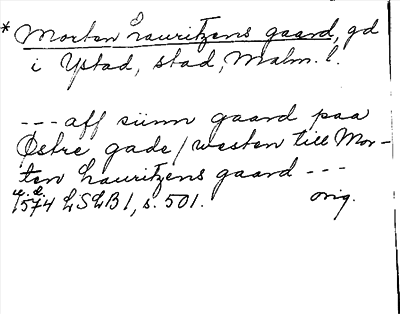 * Morten Lauritzens gaard, gd
i Ystad, stad, Malm. l.
--- aff siinn gaard paa
Østre gade / westen till Mor-
ten Lauritzens gaard ---
u.d.
1574 LSLB 1, s. 501. orig.